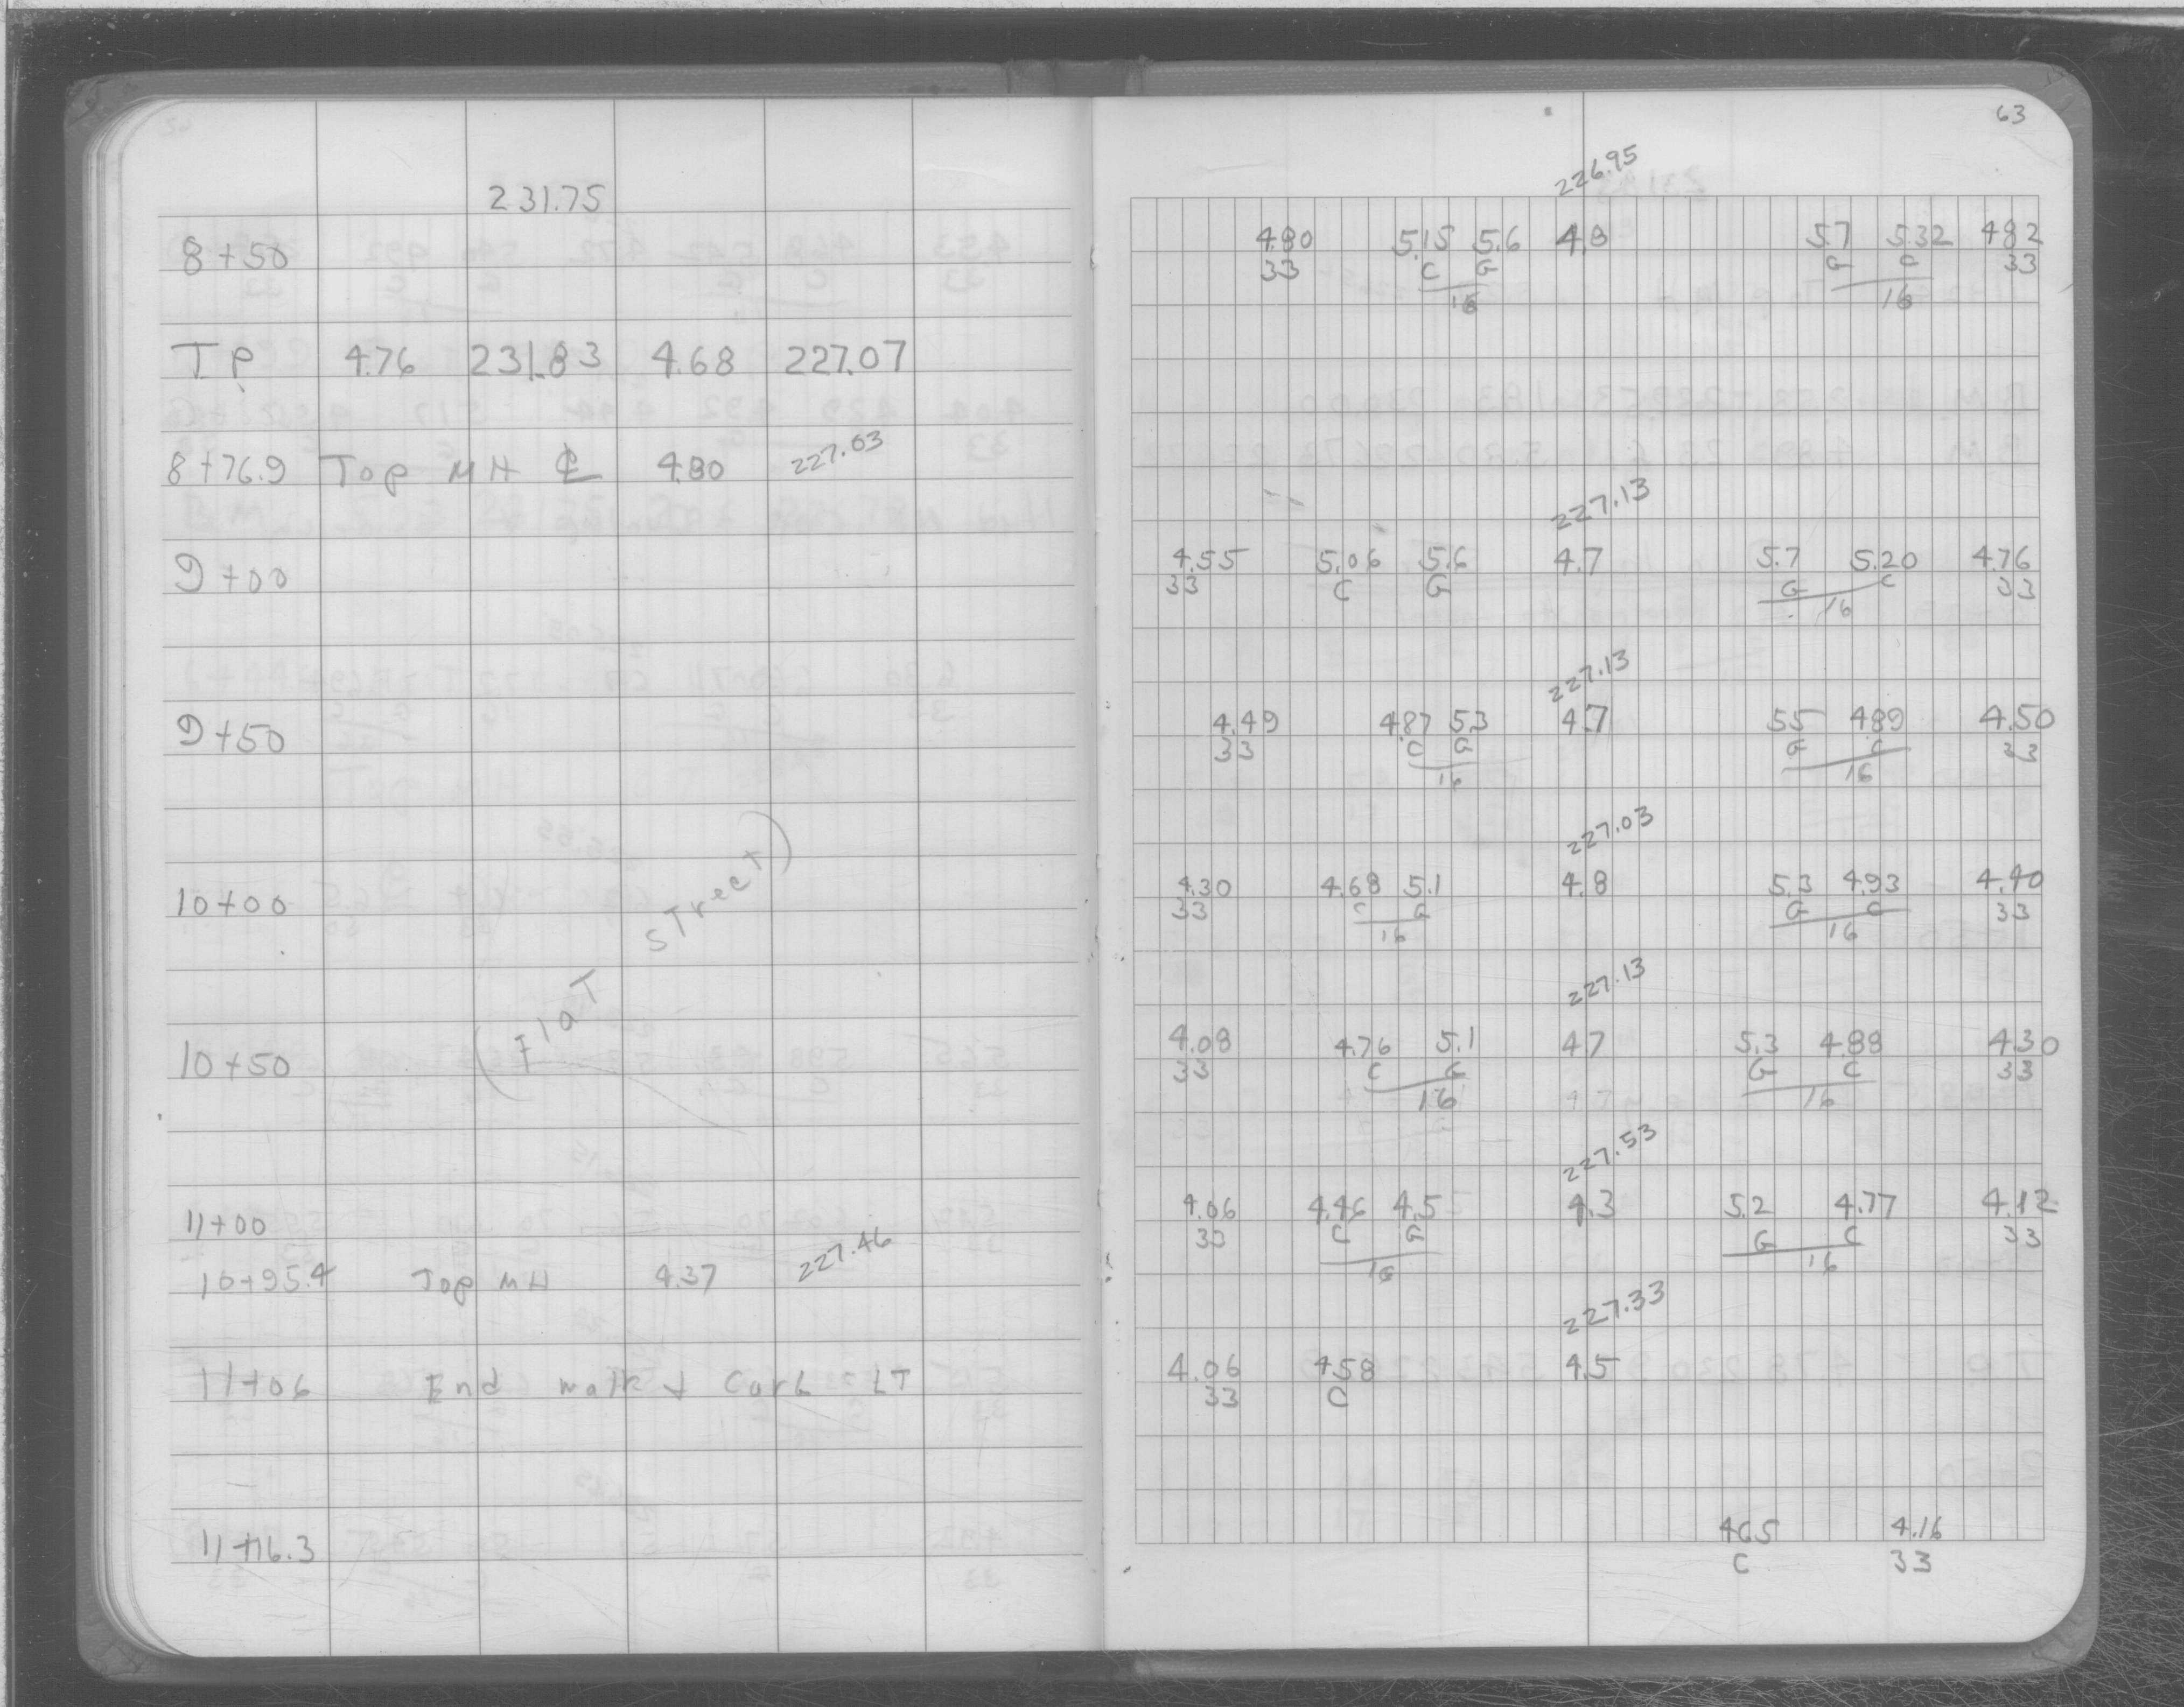 63
231.75
226.95
8+50 4.80 5.15 5.6 4.8 5.7 5.32 4.82
33 C G G C 33
16 16
TP 4.76 231.83 4.68 227.07
8+76.9 Top MH ℄ 4.80 227.03
227.13
9+00 4.55 5.06 5.6 4.7 5.7 5.20 4.76
33 C G G C 33
16
227.13
9+50 4.49 4.87 5.3 4.7 5.5 4.89 4.50
33 C G G C 33
16 16
227.03
10+00 4.30 4.68 5.1 4.8 5.3 4.93 4.40
33 C G G C 33
16 16
(Flat Street)
227.13
10+50 4.08 4.76 5.1 4.7 5.3 4.88 4.30
33 C G G C 33
16 16
227.53
11+00 4.06 4.46 4.5 4.3 5.2 4.77 4.12
33 C G G C 33
16 16
10+95.4 Top MH 4.37 227.46
227.33
11+06 End walk + Curb LT 4.06 4.58 4.5
33 C
11+16.3 4.65 4.16
C 33